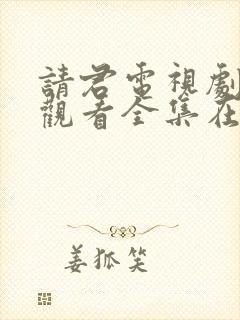 請君電視劇
觀看全集在
姜狐笑